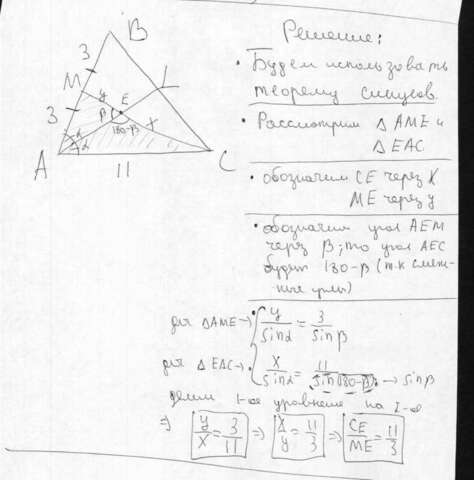 B
3
M
L
y
3
E
β
x
180-β
α
α
A
11
C
Решение:
• Будем использовать
теорему синусов.
• Рассмотрим △AME и
△EAC
• обозначим CE через X
ME через y
• обозначим угол AEM
через β; то угол AEC
будет 180-β (т.к смеж-
ные углы)
для △AME→ y/sinα = 3/sinβ
для △EAC→ x/sinα = 11/sin(180-β) → sinβ
делим 1-ое уравнение на
⇒ y/x = 3/11 ⇒ x/y = 11/3 ⇒ CE/ME = 11/3